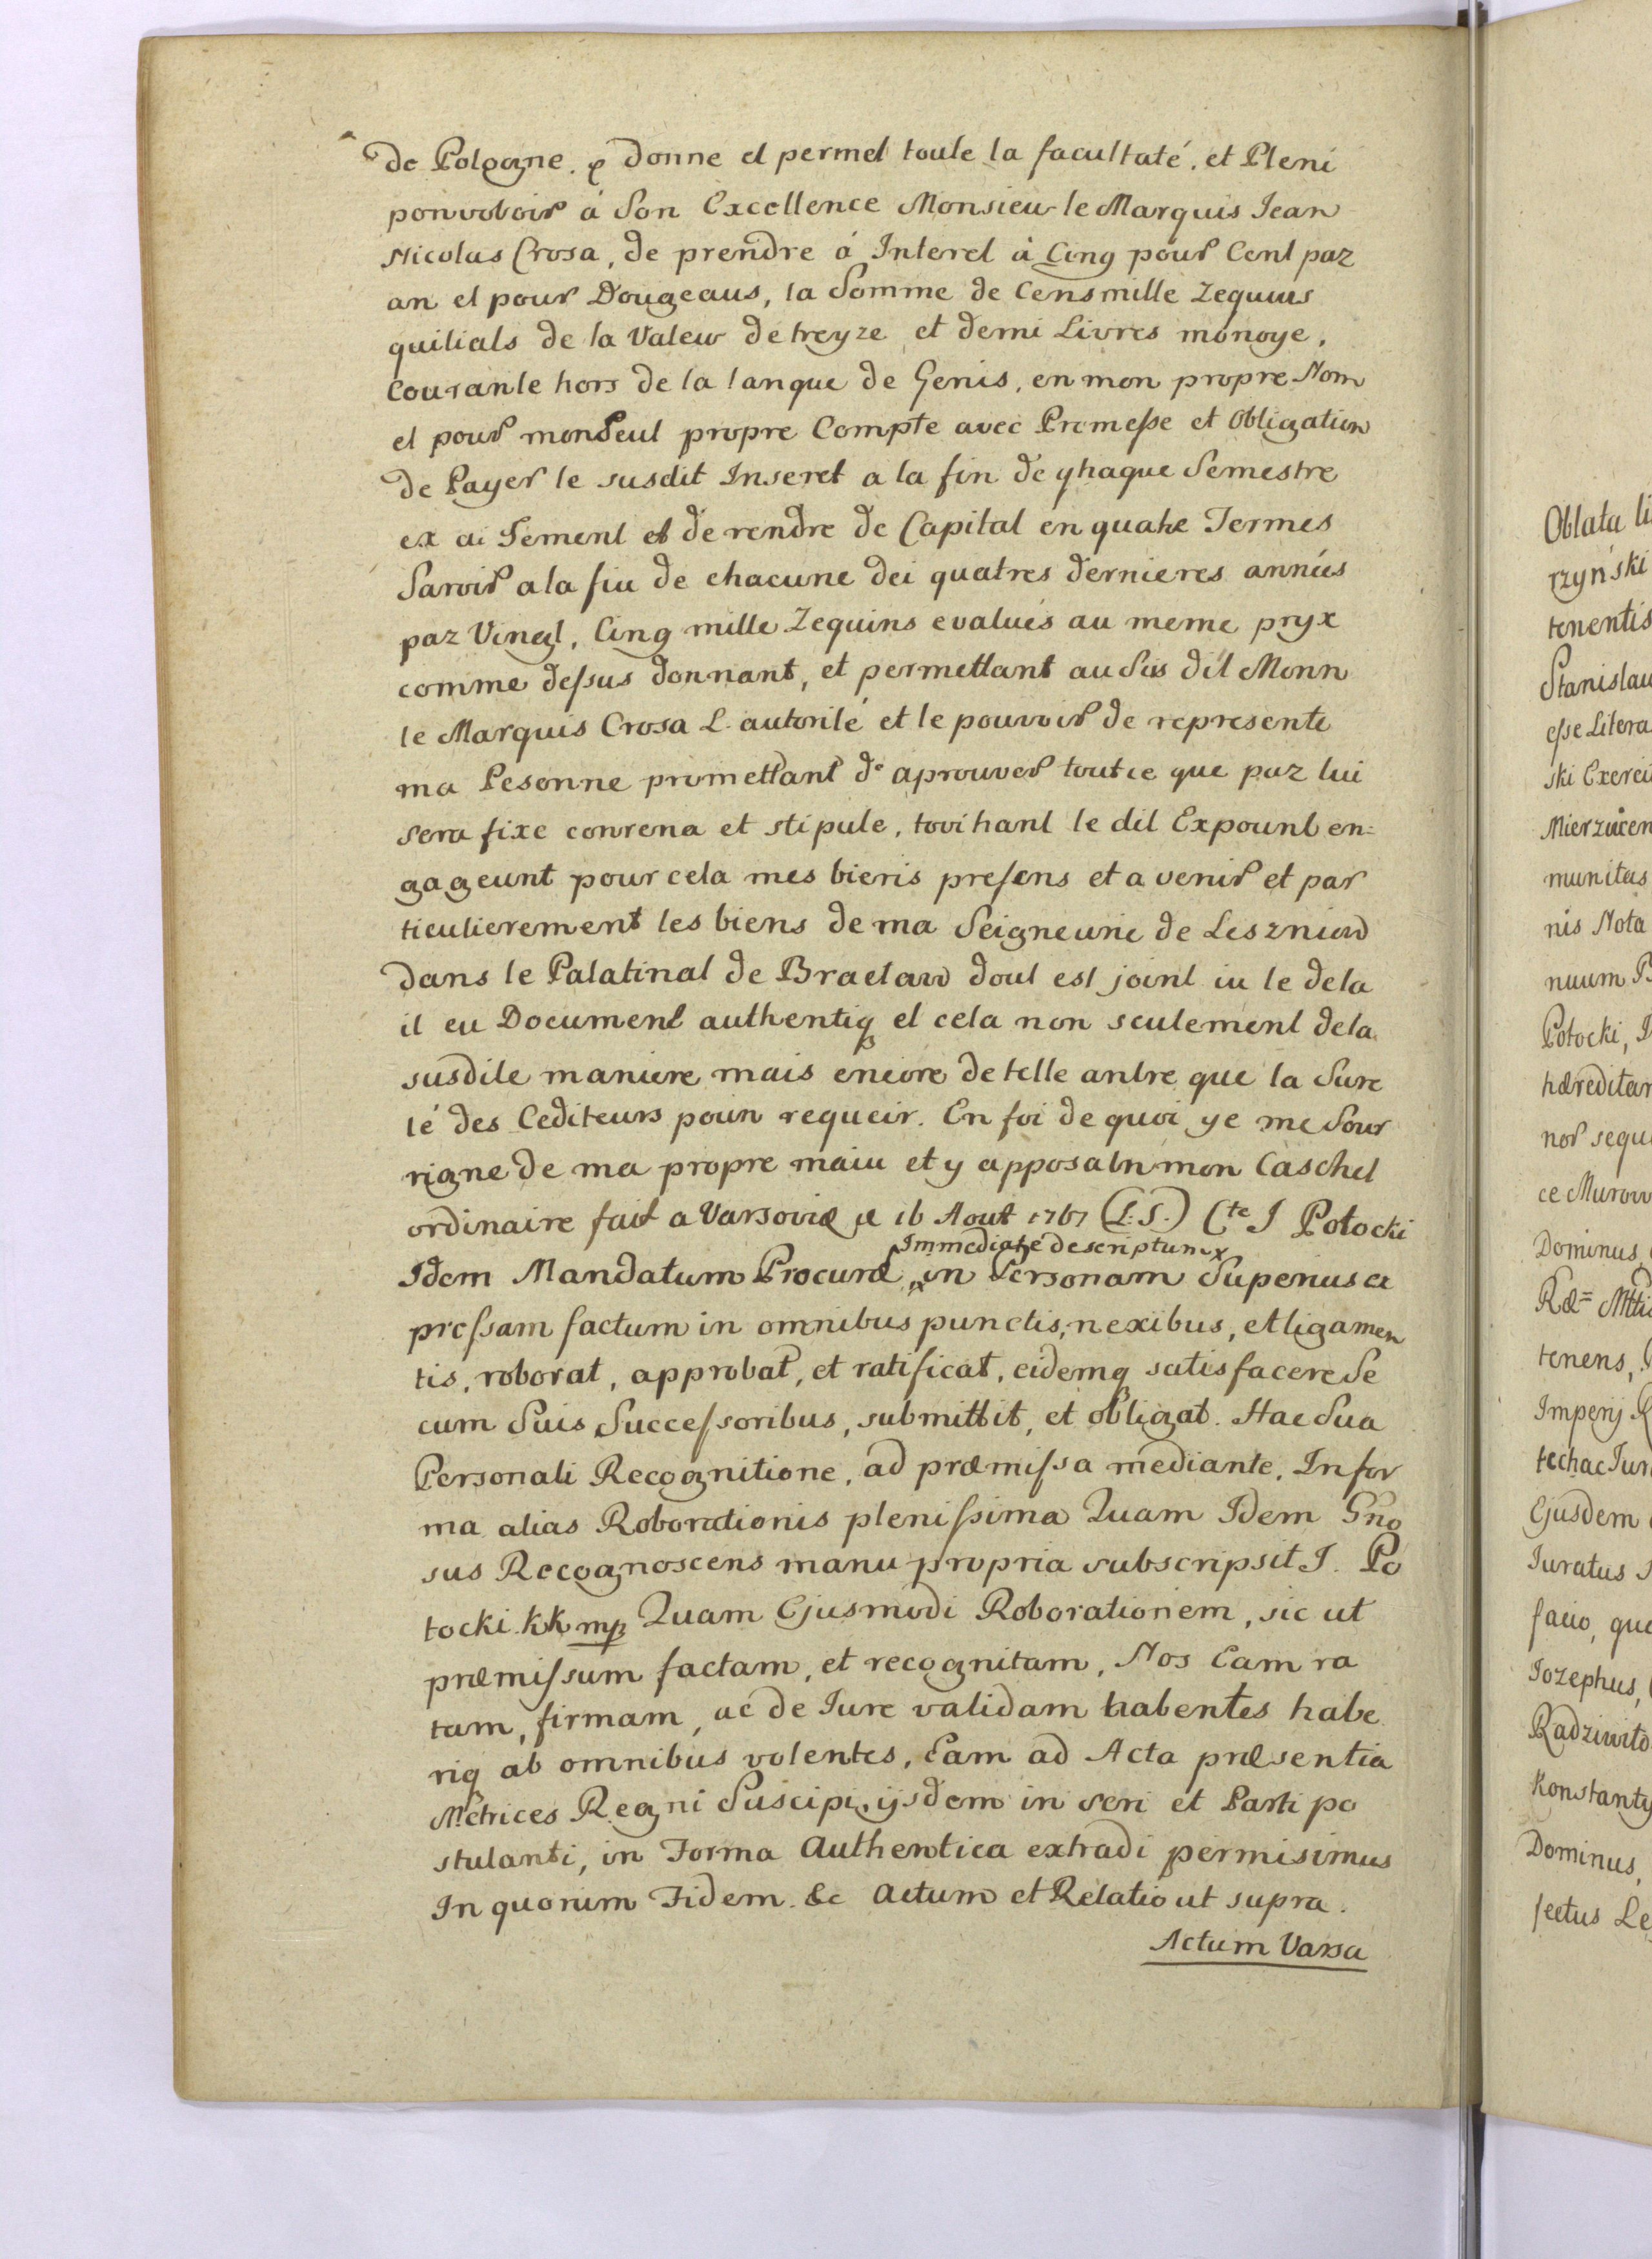 de Pologne. e donne et permet toute la facultaté. et Pleni
ponvoboir á Son Excellence Monsieur le Marquis Jean
Nicolas Crosa, de prendre á Interet à Cinq pour Cent paz
an et pour Dougeaus, la Somme de Cens mille Zequins
quilials de la Valeur de treyze et demi Livres monoye,
Courante hors de la lanque de Genis, en mon propre Nom
et pour mon Seul propre Compte avec Promesse et Obligation
de Payer le susdit Inseret a la fin de yhaque Semestre
ex ai Sement et de rendre de Capital en quatre Termes
Savoir a la fiu de chacune dei quatres dernieres annús
paz Vingt, Cinq mille Zequins evalués au meme pryx
comme dessus donnant, et permettant au Sus dit Monn
le Marquis Crosa L autorité et le pouvoir de represente
ma Pesonne promettant de aprouver tout ce que paz lui
sera fixe convena et stipule, tovihant le dit Expount en=
gageunt pour cela mes bieris presens et a venir et par
ticulierement les biens de ma Seigneurie de Leszniow
dans le Palatinat de Braclaw dout est joint iu le dela
il eu Document authentiq et cela non seulement dela
susdite maniere mais eneore de telle antre que la Sure
té des Cediteurs pouin requeir. En foi de quoi ye me Sour
rigne de ma propre maiu et y apposaln mon Caschet
ordinaire fait a Varsovie le 16 Aout 1767 (L.S.) Cte J Potocki
Immediate descriptum
Idem Mandatum Procuræ, in Personam Superius ex
pressam factum in omnibus punctis, nexibus, et ligamen
tis, roborat, approbat, et ratificat, eidemq satisfacere Se
cum Suis Successoribus, submittit, et obligat. Hac Sua
Personali Recognitione, ad præmissa mediante. In for
ma alias Roborationis plenissima Quam Idem Gno
sus Recognoscens manu propria subscripsit J. Po
tocki KK mp Quam Ejusmodi Roborationem, sic ut
præmissum factam, et recognitam, Nos Eam ra
tam, firmam, ac de Iure validam habentes habe
riq ab omnibus volentes, Eam ad Acta præsentia
Metrices Regni Suscipi, ijsdem in seri et Parti po
stulanti, in Forma Authentica extradi permisimus
In quorum Fidem. &c Actum et Relatio ut supra.
Actum Varsa
Oblata li
rzyński
tenentis
Stanislau
esse Litera
ski Exerci
Mierzwicen
munitas
nis Nota
nuum P
Potocki, I
hæreditar
nor sequ
ce Murow
Dominus,
Ræ= Mtti
tenens,
Imperij R
techac Iur
Ejusdem
Iuratus
facio, que
Iozephus,
Radziwiło
Konstanty
Dominus,
fectus Le